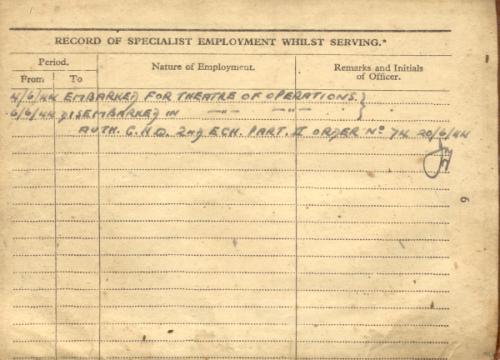 RECORD OF SPECIALIST EMPLOYMENT WHILST SERVING.*
Period.
Nature of Employment.
Remarks and Initials of Officer.
From
To
4/6/44 EMBARKED FOR THEATRE OF OPERATIONS.}
6/6/44 DISEMBARKED IN —"— —"— }
AUTH. G.H.Q. 2ND ECH. PART. II ORDER Nº 74 20/6/44
9